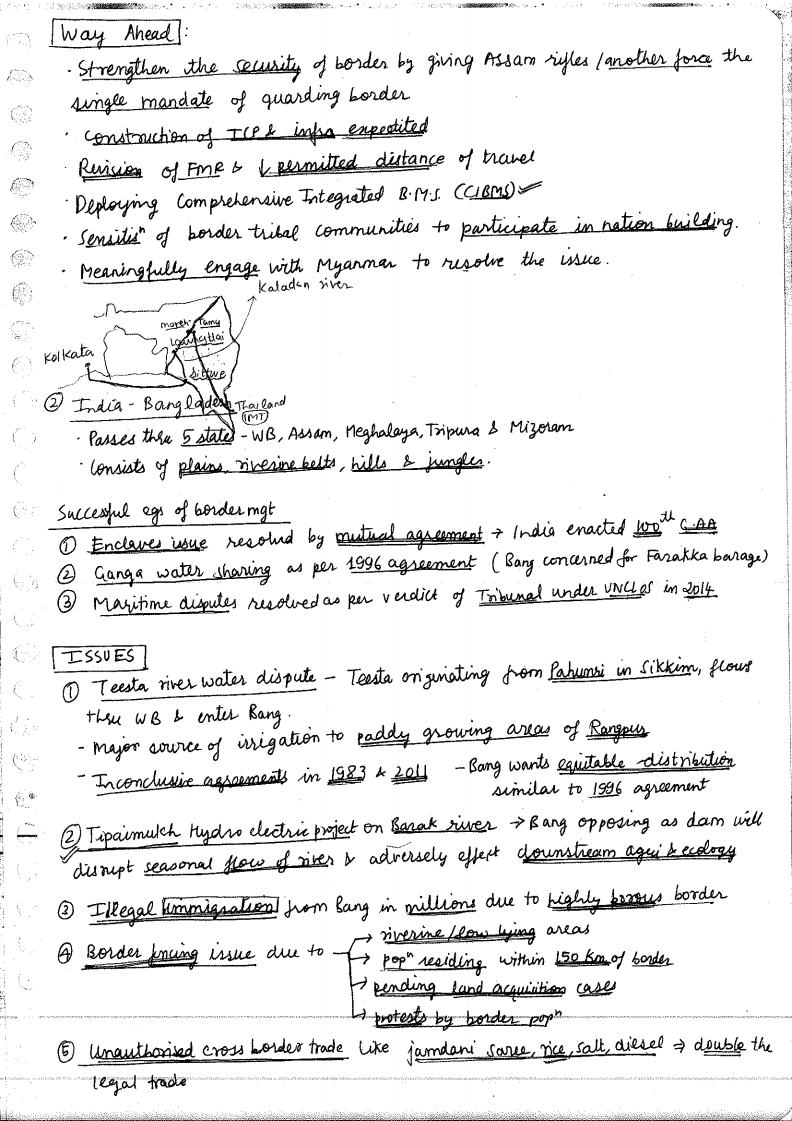 Way Ahead :
· Strengthen the security of border by giving Assam rifles / another force the
single mandate of guarding border
· Construction of ICP & infra expedited
· Revision of FMR & ↓ permitted distance of travel
· Deploying Comprehensive Integrated B.M.S. (CIBMS) ✓
· Sensitisⁿ of border tribal communities to participate in nation building.
· Meaningfully engage with Myanmar to resolve the issue.
Kaladan river
moreh Tamu
Lawngtlai
Kolkata
Sittwe
② India - Bangladesh
Thailand
IMT
· Passes thru 5 states - WB, Assam, Meghalaya, Tripura & Mizoram
· Consists of plains, riverine belts, hills & jungles.
Successful egs of border mgt
① Enclaves issue resolved by mutual agreement → India enacted 100th CAA
② Ganga water sharing as per 1996 agreement (Bang concerned for Farakka barage)
③ Maritime disputes resolved as per verdict of Tribunal under UNCLOS in 2014
ISSUES
① Teesta river water dispute - Teesta originating from Pahunri in Sikkim, flows
thru WB & enter Bang.
- Major source of irrigation to paddy growing areas of Rangpur
- Inconclusive agreements in 1983 & 2011 - Bang wants equitable distribution
similar to 1996 agreement
② Tipaimukh Hydro electric project on Barak river → Bang opposing as dam will
disrupt seasonal flow of river & adversely effect downstream agri & ecology
③ Illegal immigration from Bang in millions due to highly porous border
④ Border fencing issue due to → riverine / low lying areas
→ popⁿ residing within 150 Km of border
→ pending land acquisition cases
→ protests by border popⁿ
⑤ Unauthorised cross border trade like jamdani saree, rice, salt, diesel ⇒ double the
legal trade